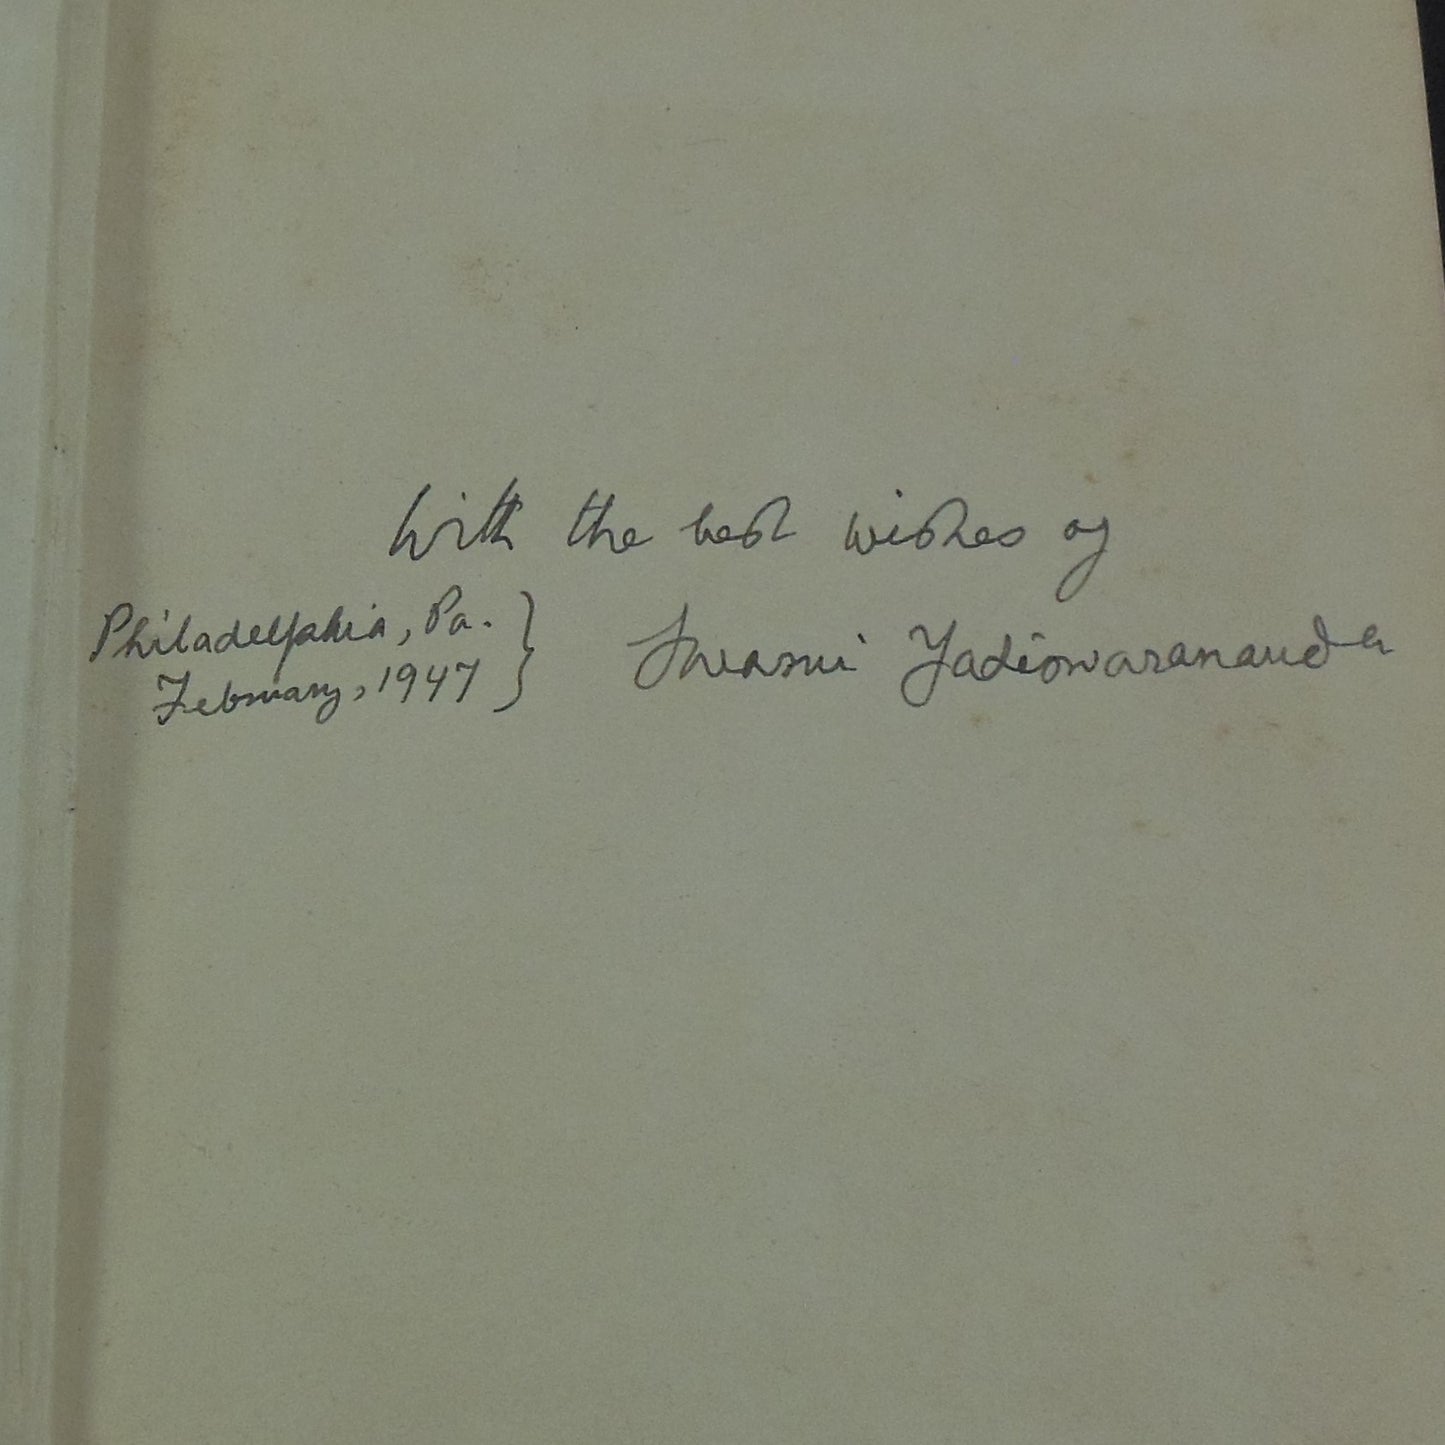 With the best wishes of
Swami Yatiswarananda
Philadelphia, Pa.
February, 1947